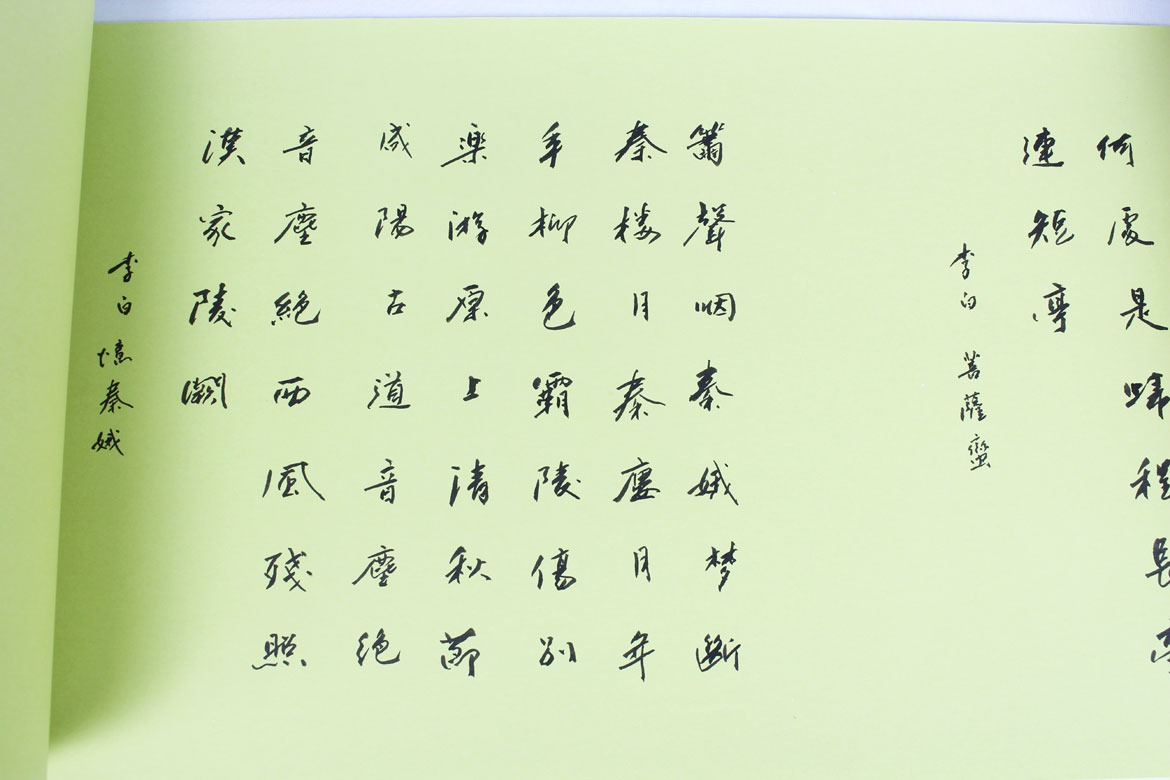 何處是歸程長亭
連短亭
李白 菩薩蠻
簫聲咽秦娥梦斷
秦楼月秦廔月年
年柳色霸陵傷別
楽游原上清秋節
咸陽古道音塵绝
音塵絕西風殘照
漢家陵闕
李白 憶秦娥